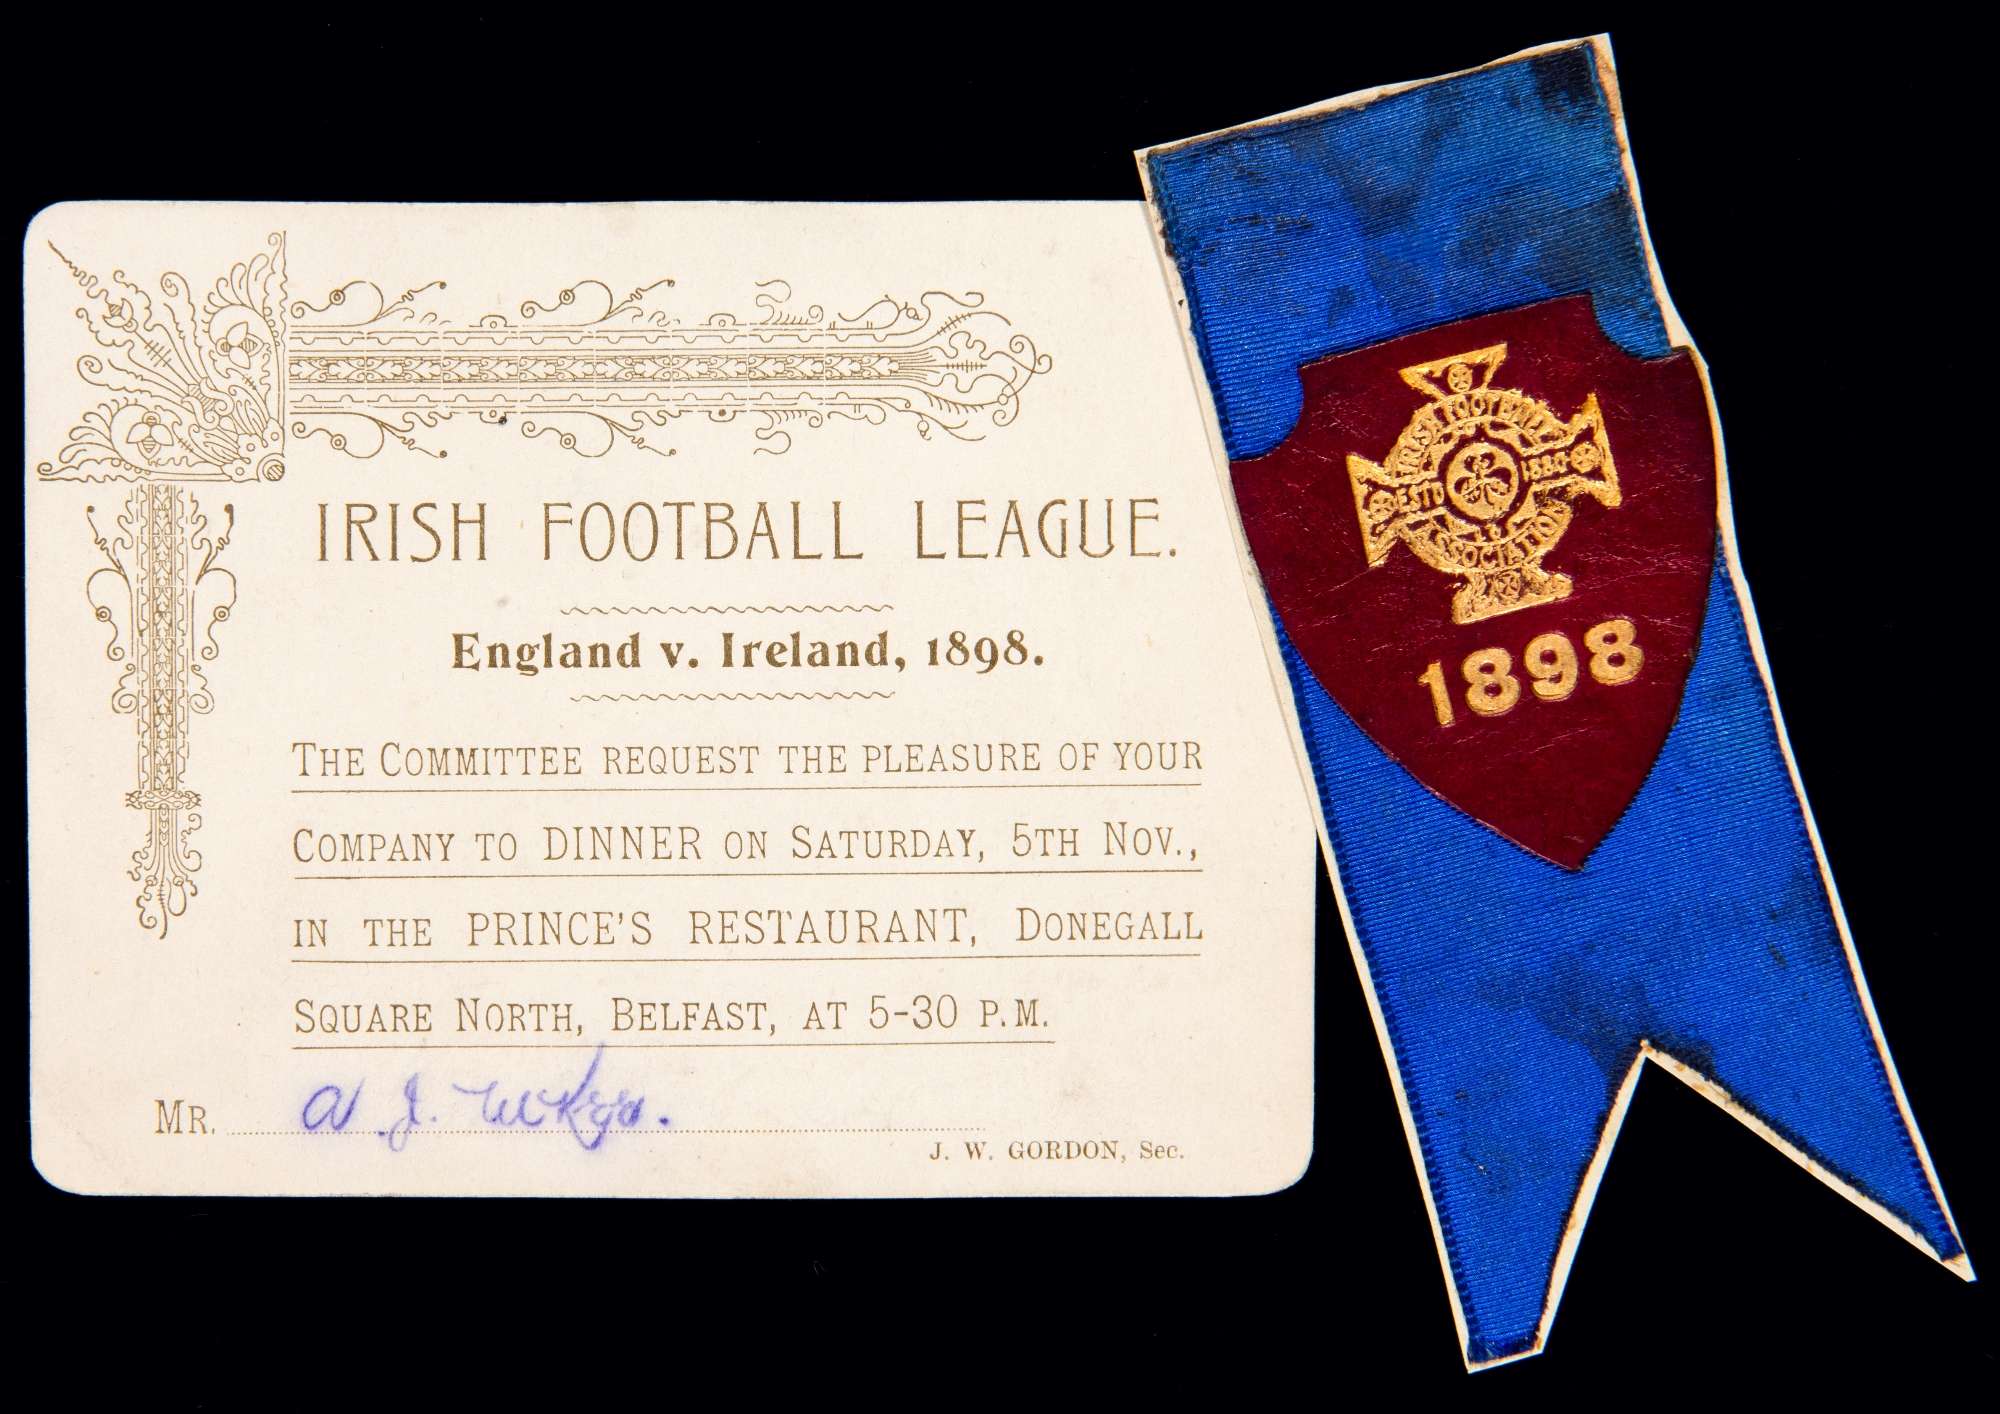 IRISH FOOTBALL LEAGUE.
England v. Ireland, 1898.
THE COMMITTEE REQUEST THE PLEASURE OF YOUR
COMPANY TO DINNER ON SATURDAY, 5TH NOV.,
IN THE PRINCE'S RESTAURANT, DONEGALL
SQUARE NORTH, BELFAST, AT 5-30 P.M.
MR. A. J.
J. W. GORDON, Sec.
IRISH FOOTBALL
ESTD 1880
ASSOCIATION
1898